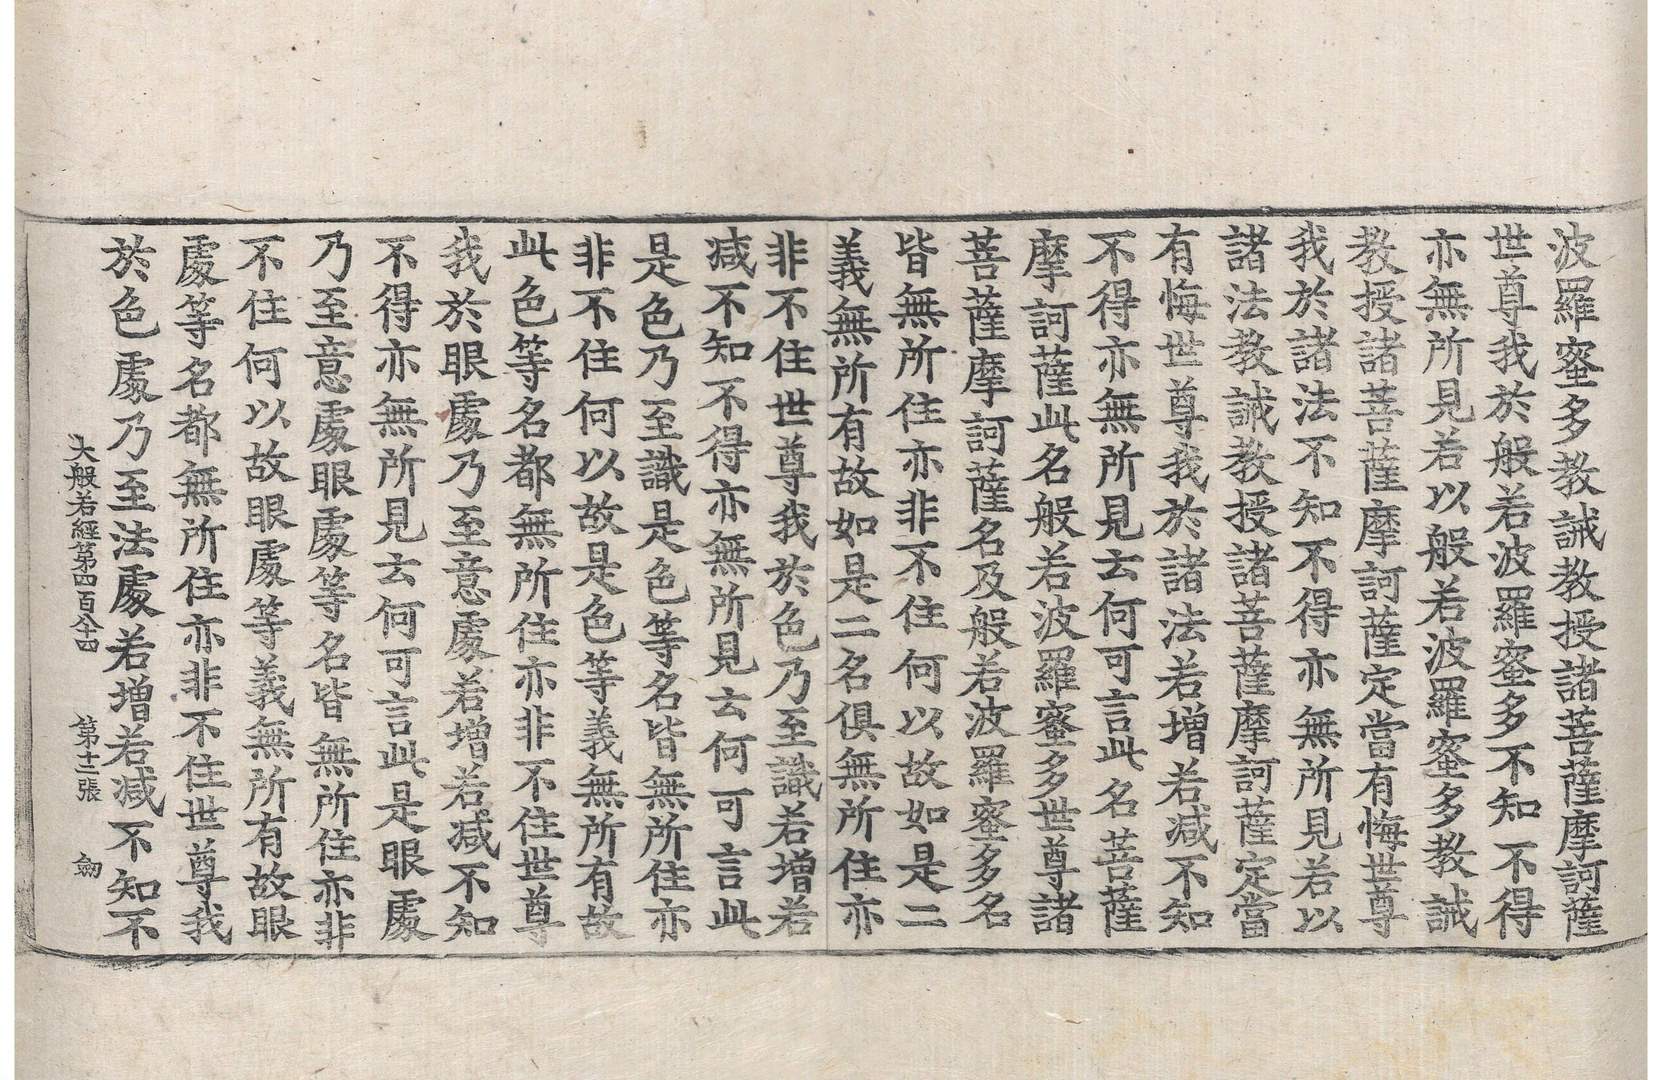 波羅蜜多教誡教授諸菩薩摩訶薩
世尊我於般若波羅蜜多不知不得
亦無所見若以般若波羅蜜多教誡
教授諸菩薩摩訶薩定當有悔世尊
我於諸法不知不得亦無所見若以
諸法教誡教授諸菩薩摩訶薩定當
有悔世尊我於諸法若增若減不知
不得亦無所見云何可言此名菩薩
摩訶薩此名般若波羅蜜多世尊諸
菩薩摩訶薩名及般若波羅蜜多名
皆無所住亦非不住何以故如是二
義無所有故如是二名俱無所住亦
非不住世尊我於色乃至識若增若
減不知不得亦無所見云何可言此
是色乃至識是色等名皆無所住亦
非不住何以故是色等義無所有故
此色等名都無所住亦非不住世尊
我於眼處乃至意處若增若減不知
不得亦無所見云何可言此是眼處
乃至意處眼處等名皆無所住亦非
不住何以故眼處等義無所有故眼
處等名都無所住亦非不住世尊我
於色處乃至法處若增若減不知不
大般若經第四百八十四 第十二張 劒